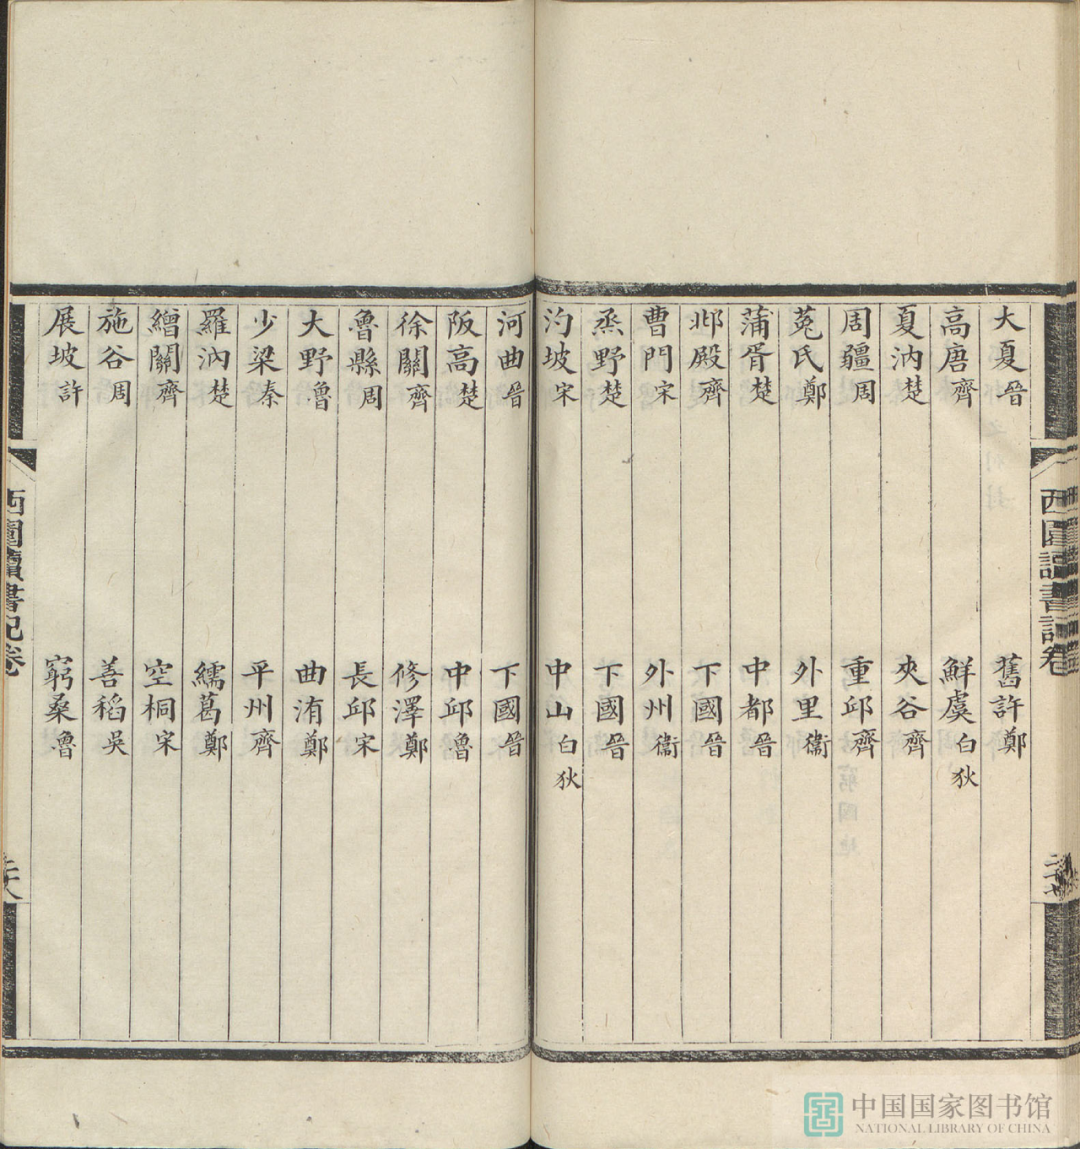 大夏晉　舊許鄭
高唐齊　鮮虞白狄
夏汭楚　夾谷齊
周疆周　重邱齊
菟氏鄭　外里衞
蒲胥楚　中都晉
邶殿齊　下國晉
曹門宋　外州衞
烝野楚　下國晉
汋坡宋　中山白狄
河曲晉　下國晉
阪高楚　中邱魯
徐關齊　修澤鄭
魯縣周　長邱宋
大野魯　曲洧鄭
少梁秦　平州齊
羅汭楚　繻葛鄭
繒關齊　空桐宋
施谷周　善稻吳
展坡許　窮桑魯
西圃讀書記卷
西圃讀書記卷
二十八
中国国家图书馆
NATIONAL LIBRARY OF CHINA